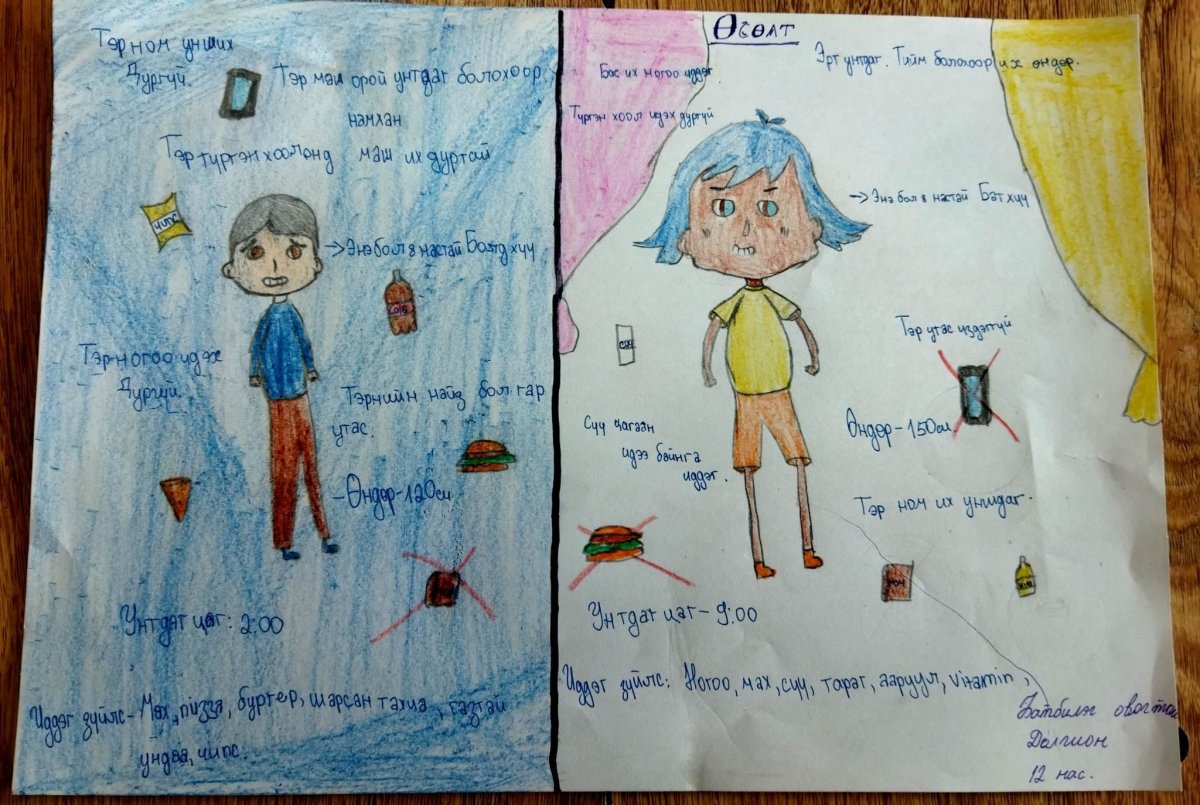 Өсөлт
Тэр ном унших
Дургүй.
Тэр маш орой унтдаг болохоор
намхан
Тэр түргэн хоолонд маш их дуртай
чипс
→Энэ бол 8 настай Болд хүү
cola
Тэр ногоо идэх
Дургүй.
Тэрнийн найз бол гар
утас.
-Өндөр-120см
Унтдаг цаг: 2:00
Иддэг зүйлс- Мах, пизза, бургер, шарсан тахиа, газтай
ундаа, чипс.
Бас их ногоо иддэг
Эрт унтдаг. Тийм болохоор их өндөр.
Түргэн хоол идэх дургүй
→Энэ бол 8 настай Бат хүү
сүү
Тэр утас үздэггүй
Өндөр-150см
Сүү цагаан
идээ байнга
иддэг.
Тэр ном их уншдаг.
ном
Унтдаг цаг-9:00
Иддэг зүйлс: Ногоо, мах, сүү, тараг, ааруул, vitamin,
Батбилэг овогтой
Долгион
12 нас.